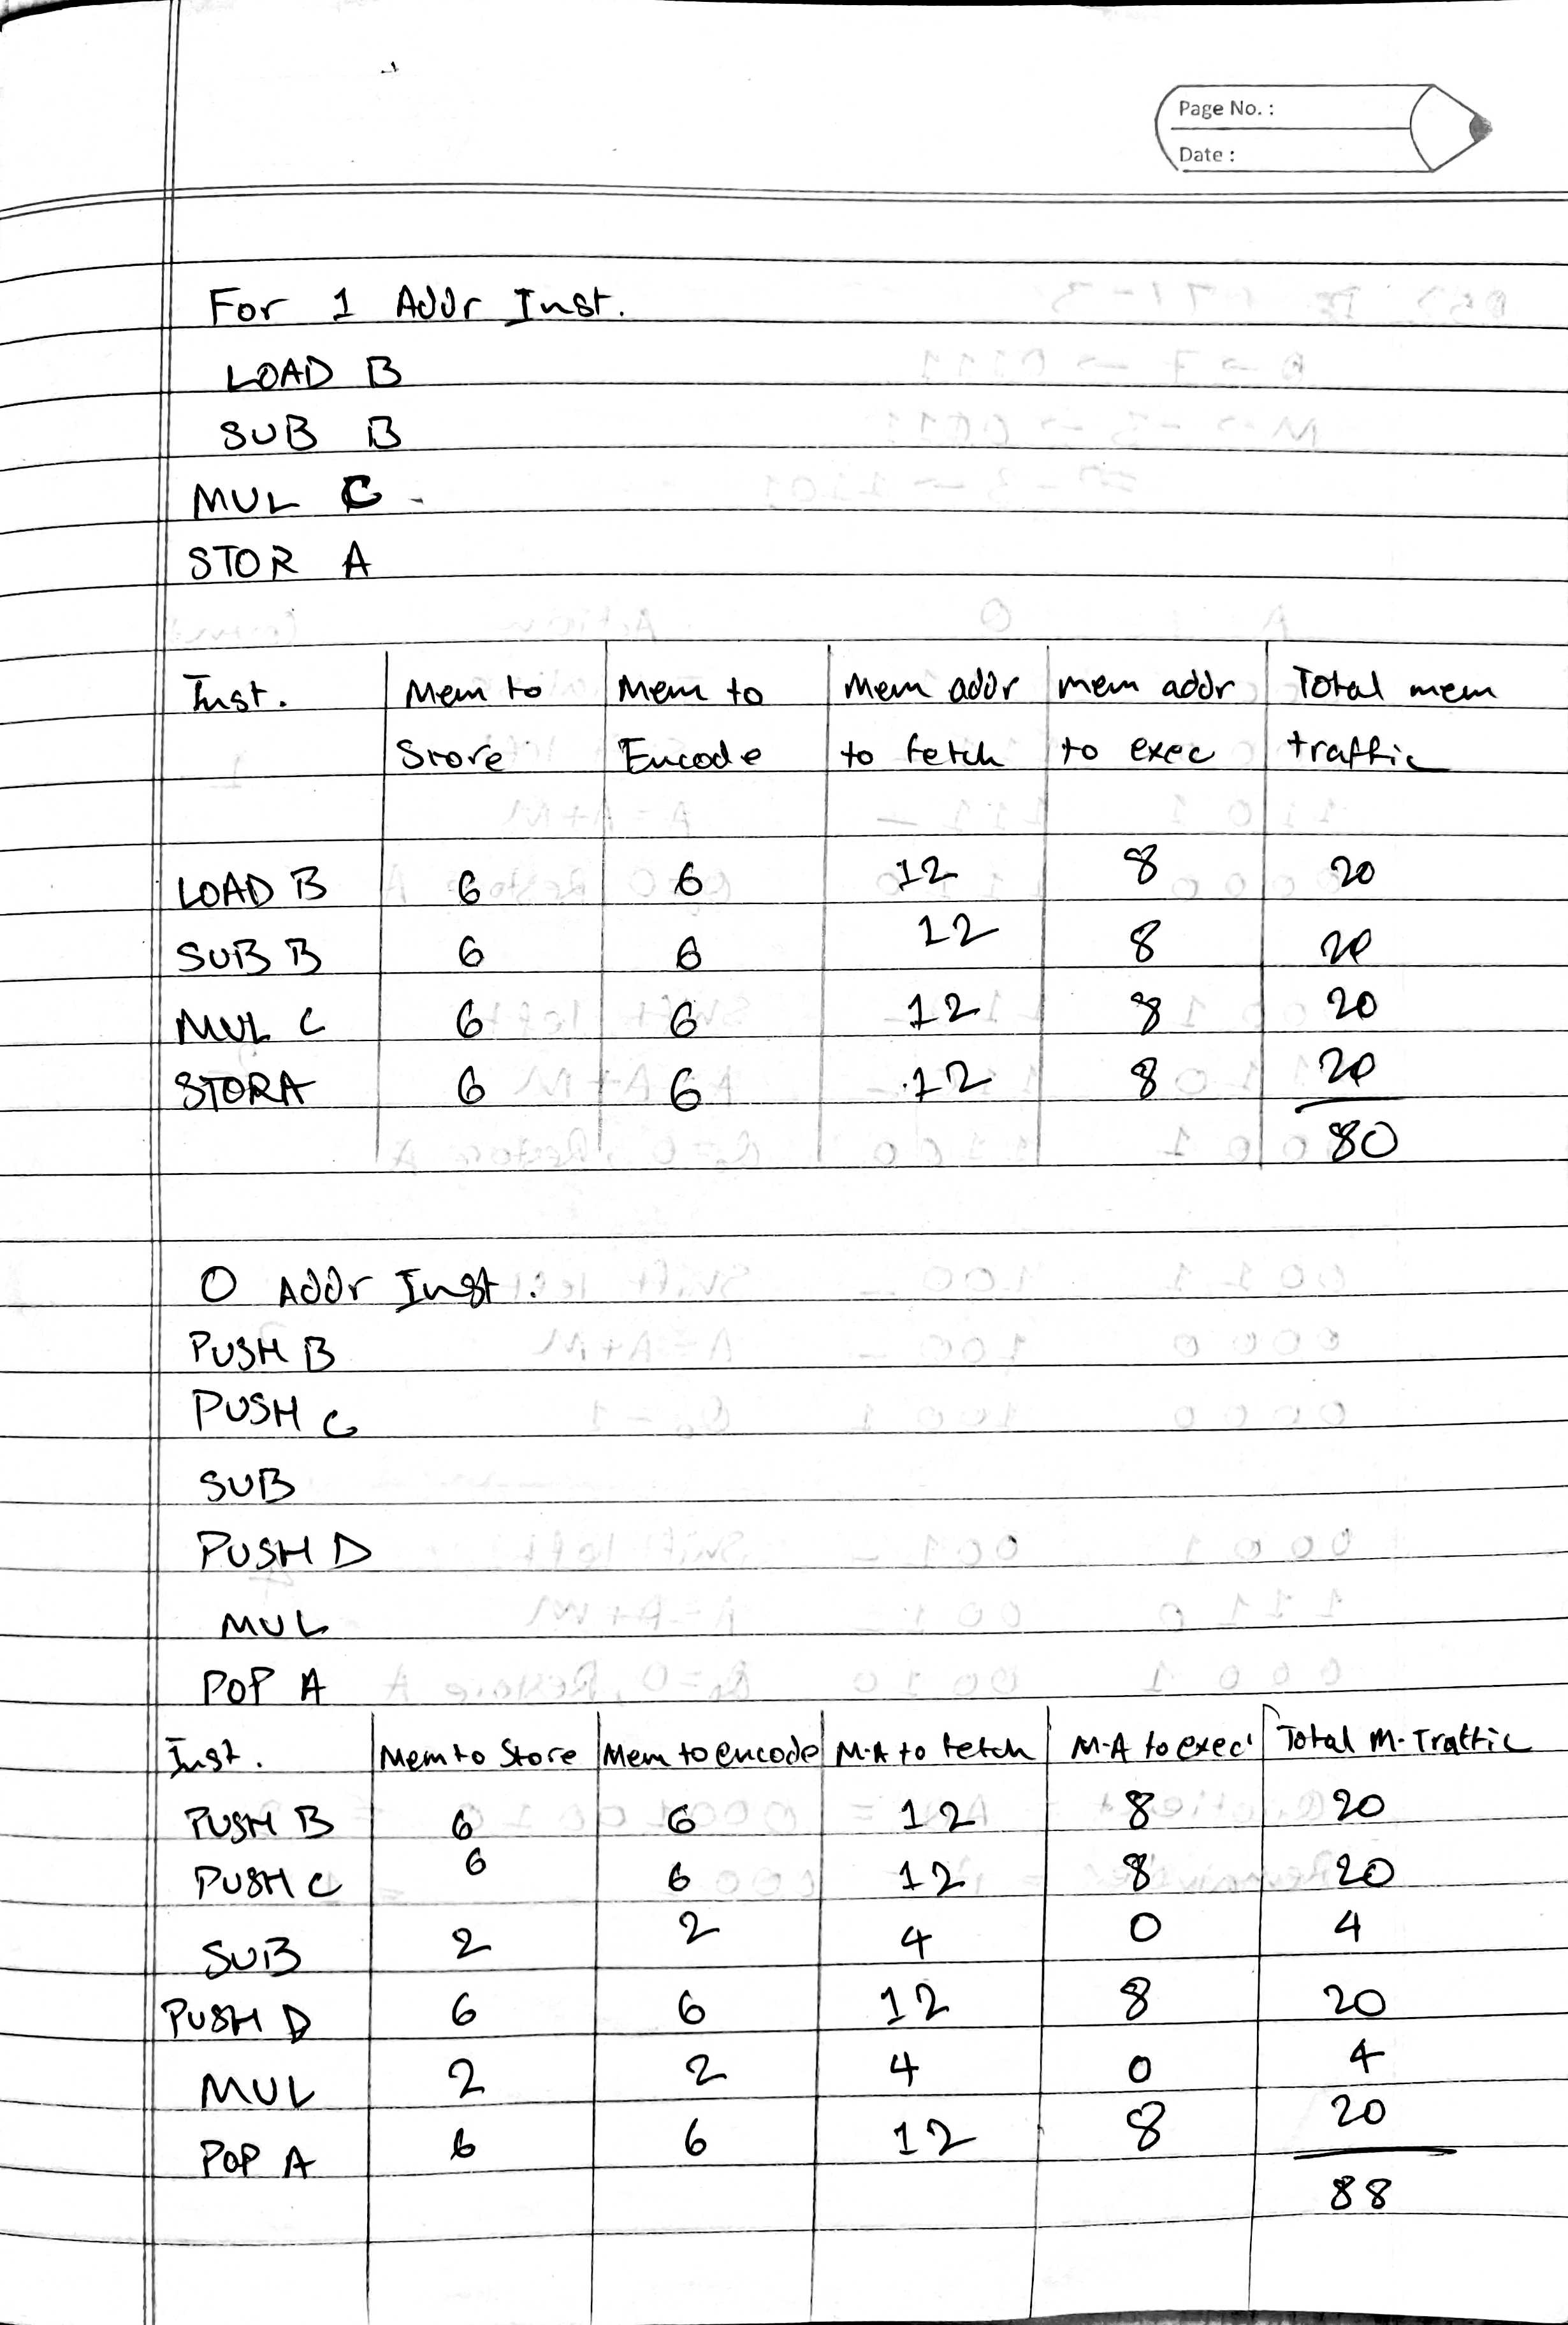 Page No. :
Date :
For 1 Addr Inst.
LOAD B
SUB B
MUL C
STOR A
Inst. Mem to Store Mem to Encode Mem addr to fetch mem addr to exec Total mem traffic
LOAD B 6 6 12 8 20
SUB B 6 6 12 8 20
MUL C 6 6 12 8 20
STOR A 6 6 12 8 20
80
0 Addr Inst.
PUSH B
PUSH C
SUB
PUSH D
MUL
POP A
Inst. Mem to Store Mem to encode M-A to fetch M-A to exec Total M-Traffic
PUSH B 6 6 12 8 20
PUSH C 6 6 12 8 20
SUB 2 2 4 0 4
PUSH D 6 6 12 8 20
MUL 2 2 4 0 4
POP A 6 6 12 8 20
88